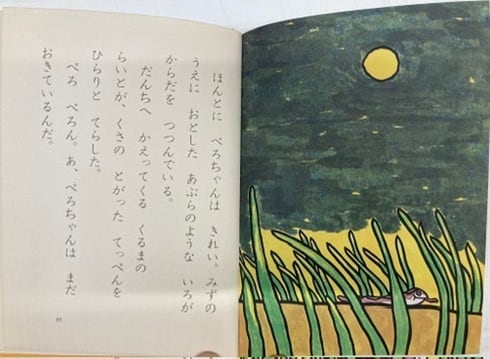 ほんとに　ぺろちゃんは　きれい。みずの
うえに　おとした　あぶらのような　いろが
からだを　つつんでいる。
だんちへ　かえってくる　くるまの
らいとが、くさの　とがった　てっぺんを
ひらりと　てらした。
ぺろ　ぺろん。あ、ぺろちゃんは　まだ
おきているんだ。